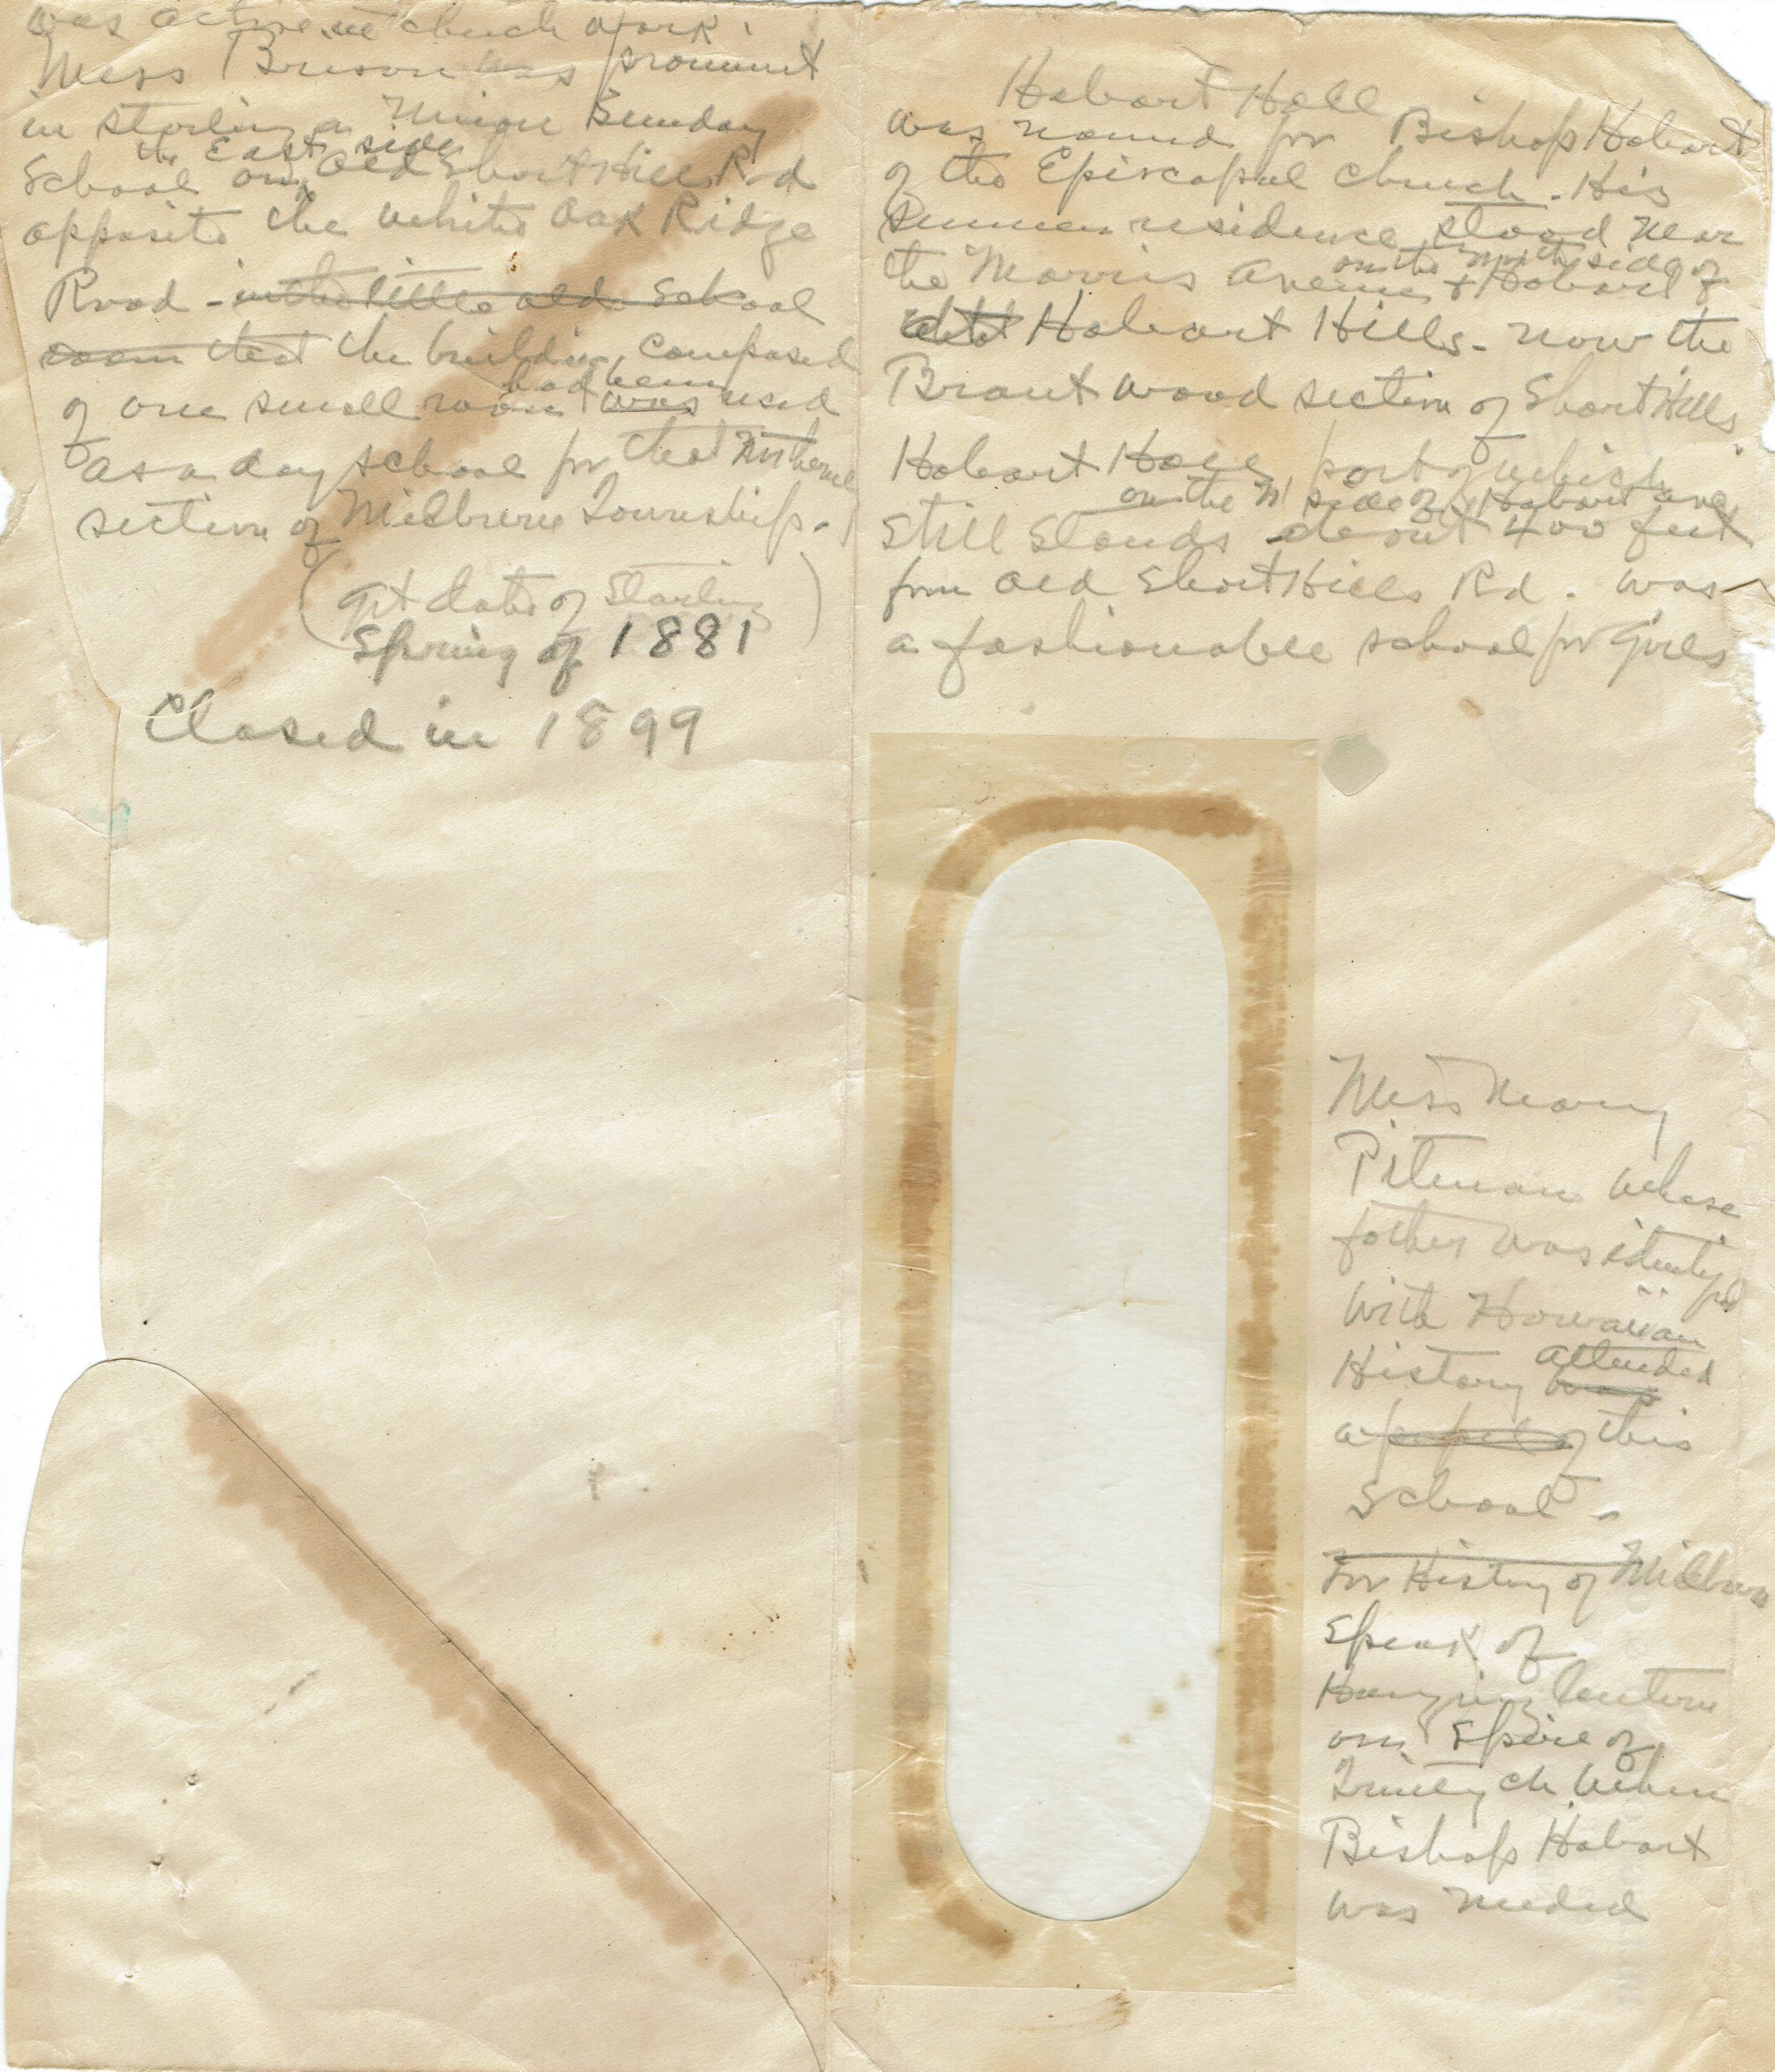 was active in church work.
Miss Brison was prominent
in starting a Union Sunday
the East side
School on Old Short Hills Rd
opposite the White Oak Ridge
Road - in the little old School
room that the building composed
had been
of one small room was used
as a day school for that Northern
section of Milburn Township.
(Get date of Starting
Spring of 1881)
Closed in 1899
Hobart Hall
was named for Bishop Hobart
of the Episcopal Church. His
summer residence stood near
on the north side of
the Morris Avenue & Hobart
Hobart Hills - now the
Brantwood section of Short Hills
Hobart Hall part of which
on the N side of Hobart ave
still stands about 400 feet
from Old Short Hills Rd. was
a fashionable school for Girls
Miss Mary
Pitman whose
father was identified
with Hawaiian
attended
History was
a pupil of this
School -
For History of Milburn
speak of
Hanging lantern
on spire of
Trinity ch when
Bishop Hobart
was needed